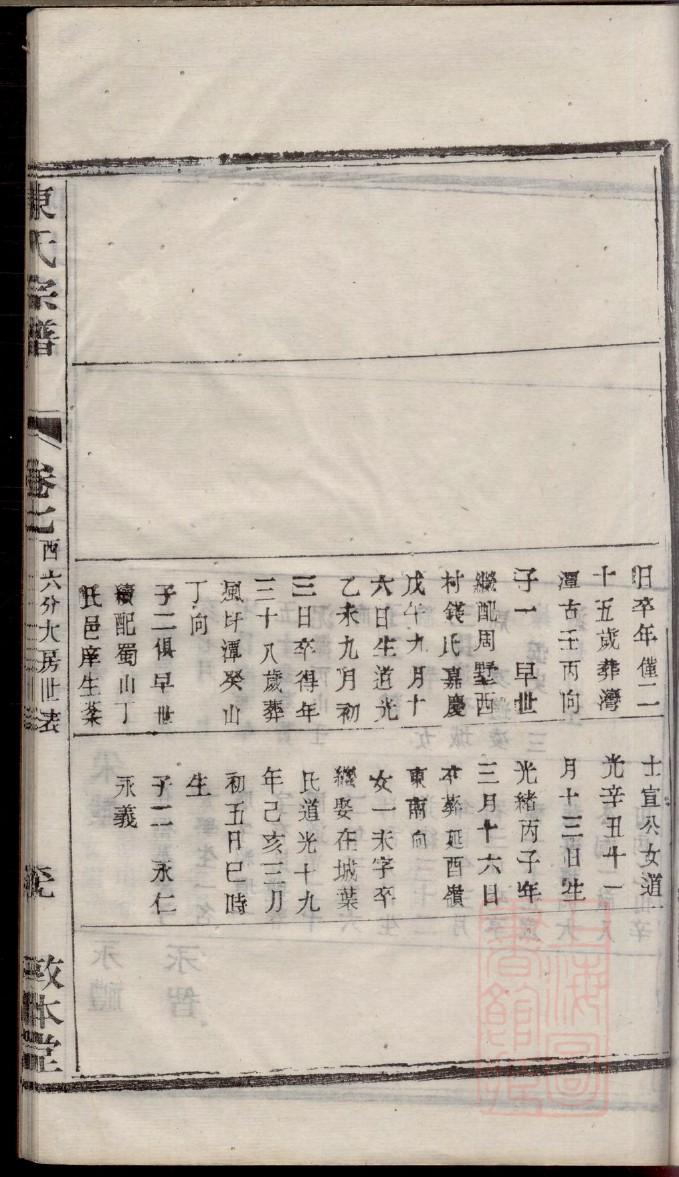 日卒年僅二
十五歲葬灣
潭古壬丙向
子一 早世
繼配周墅西
村錢氏嘉慶
戊午九月十
六日生道光
乙未九月初
三日卒得年
三十八歲葬
風圩潭癸山
丁向
子二俱早世
續配蜀山丁
氏邑庠生棻
士宜公女道
光辛丑十一
月十三日生
光緒丙子年
三月十六日
卒葬延酉嶺
東南向
女一未字卒
繼娶在城葉
氏道光十九
年己亥三月
初五日巳時
生
子二 永仁
永義
陳氏宗譜
卷七
西六分大房世表
敦本堂